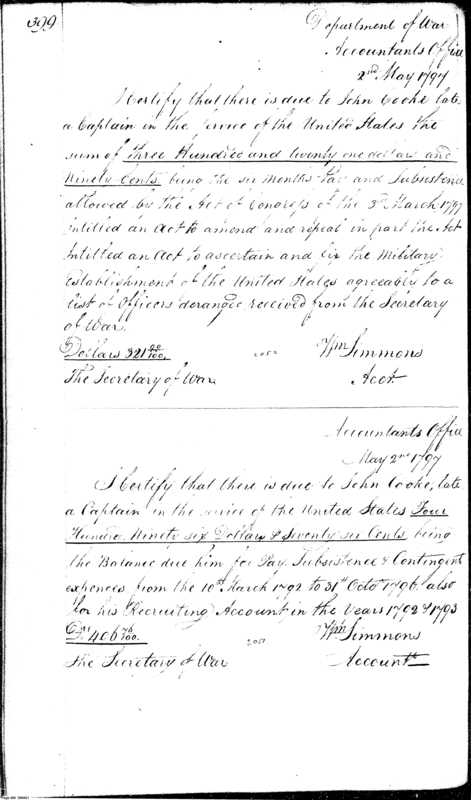 399
Department of War
Accountants Office
2nd May 1797
I Certify that there is due to John Cooke late
a Captain in the Service of the United States the
sum of three Hundred and twenty one dollars and
Ninety Cents being the six months Pay and Subsistence
allowed by the Act of Congress of the 3rd March 1797
intitled an Act to amend and repeal in part the Act
intitled an Act to ascertain and fix the Military
Establishment of the United States agreeably to a
list of Officers deranged received from the Secretary
of War.
Dollars 321 90/100.
2052
Wm Simmons
The Secretary of War
Acct.
Accountants Office
May 2nd 1797
I Certify that there is due to John Cooke, late
a Captain in the service of the United States Four
Hundred Ninety six Dollars & Seventy six Cents being
the Balance due him for Pay, Subsistence & Contingent
expences from the 10th March 1792 to 31st Octo 1796. also
for his Recruiting Account in the Years 1792 & 1793
Ds 496 76/100.
2051
Wm Simmons
The Secretary of War
Accountt